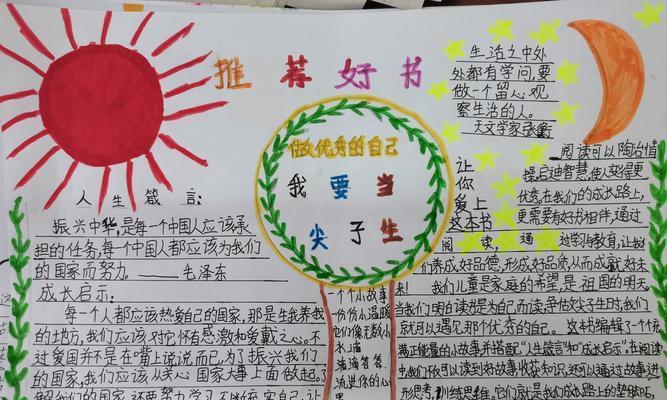 推荐好书
人生箴言:
振兴中华,是每一个中国人应该承
担的任务,每个中国人都应该为我们
的国家而努力。——毛泽东
成长启示:
每一个人都应该热爱自己的国家,那是生我养我
的地方,我们应该对它怀有感激和爱戴之心。不
过爱国并不是在嘴上说说而已,为了振兴我们
的国家,我们应该从关心国家大事上面做起。
做优秀的自己
我要当
尖子生
一个个小故事
一份份小温暖
它们像无数小
水滴
滴滴答答
流进你的心
生活之中处
处都有学问,要
做一个留心观
察生活的人。
天文学家张衡
让你爱上这本书
阅读可以陶冶情
操启迪智慧,使人变得更
优秀。在我们的成长路上,
更需要有好书相伴,通过
阅读,通过学习与教育,让我
们养成好品德,形成好品质,从而成就好未
来!我们儿童是家庭的希望,是祖国的明天
当我们明白读书是为自己而读,争做尖子生时,我们
就可以遇见那个优秀的自己。这本书编辑了一个个充
满正能量的小故事并搭配“人生箴言”和“成长启示”。在阅读
中,我们不仅可以读到好故事收获知识,还可以通过故事进
形思考,训练思维,它们就是我们成长路上的垫脚